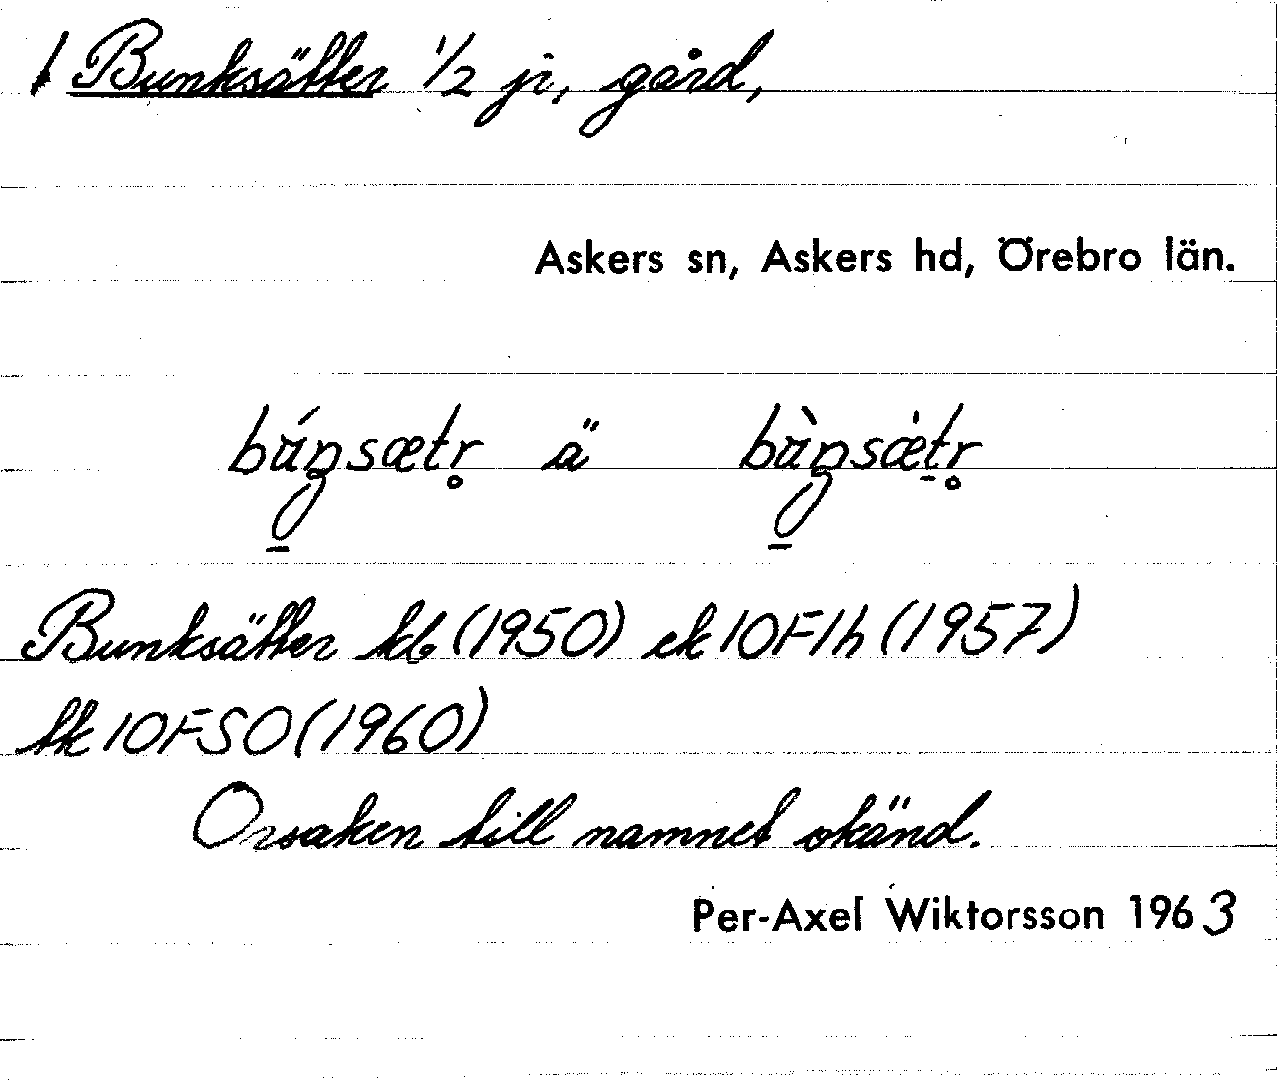 Bunksätter 1/2 jr, gård,
Askers sn, Askers hd, Örebro län.
ä
Bunksätter kb (1950) ek 10F1h (1957)
tk 10FSO (1960)
Orsaken till namnet okänd.
Per-Axel Wiktorsson 1963